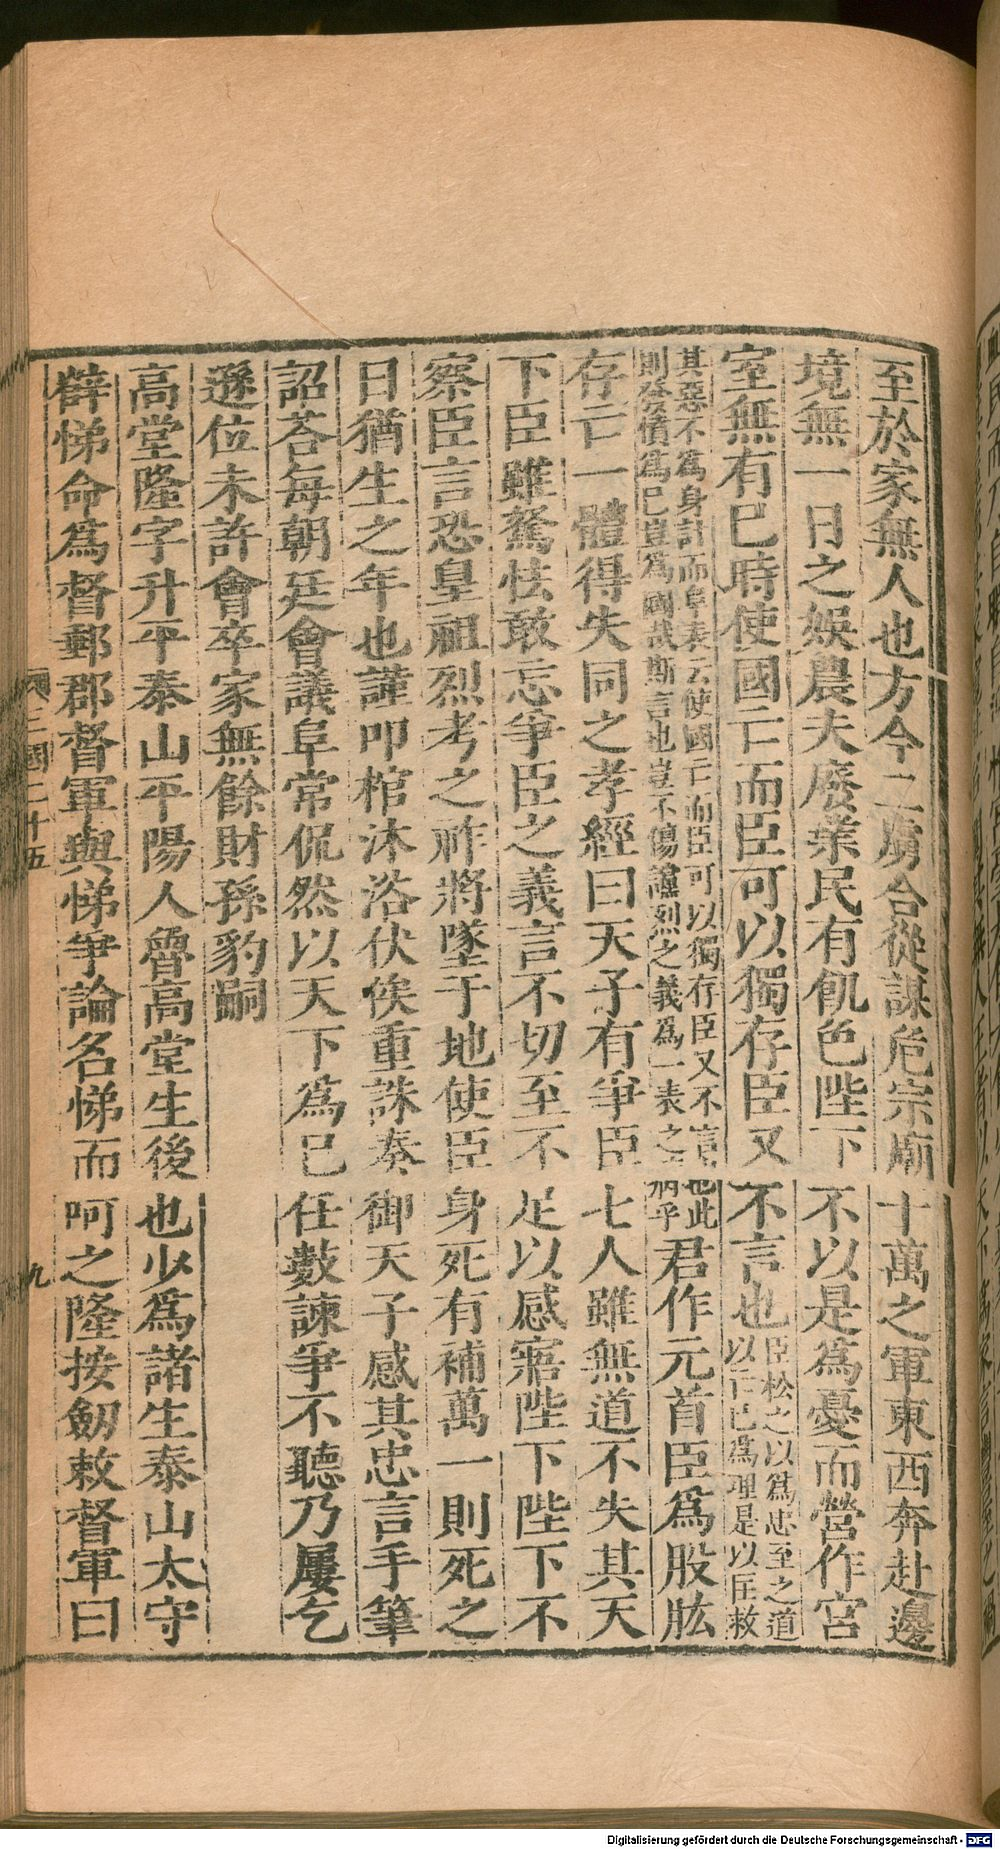 至於家無人也方今二虜合從謀危宗廟十萬之軍東西奔赴邊
境無一日之娛農夫廢業民有飢色陛下不以是為憂而營作宮
室無有已時使國亡而臣可以獨存臣又不言也臣松之以為忠至之道
以亡已為理是以匡救
其惡不為身計而阜表云使國亡而臣可以獨存臣又不言也此
則發憤為已豈為國哉斯言也豈不傷讜烈之義為一表之病乎君作元首臣為股肱
存亡一體得失同之孝經曰天子有爭臣七人雖無道不失其天
下臣雖駑怯敢忘爭臣之義言不切至不足以感寤陛下陛下不
察臣言恐皇祖烈考之祚將墜于地使臣身死有補萬一則死之
日猶生之年也謹叩棺沐浴伏俟重誅奏御天子感其忠言手筆
詔荅每朝廷會議阜常侃然以天下為已任數諫爭不聽乃屢乞
遜位未許會卒家無餘財孫豹嗣
高堂隆字升平泰山平陽人魯高堂生後也少為諸生泰山太守
薛悌命為督郵郡督軍與悌爭論名悌而呵之隆按劒敕督軍曰
三國二十五
九
Digitalisierung gefördert durch die Deutsche Forschungsgemeinschaft - DFG